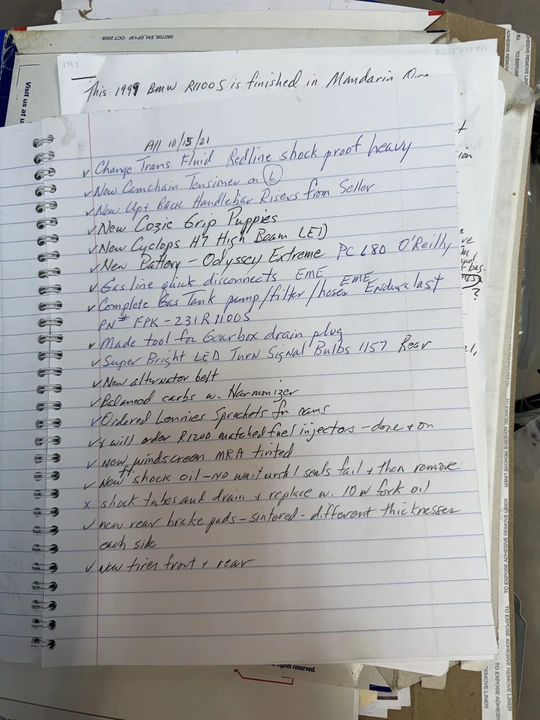 This 1999 BMW R1100S is finished in Mandarin
All 10/15/21
✓ Change Trans Fluid Redline shock proof heavy
✓ New Camchain Tensioner on Ⓛ
✓ New Up + Back Handlebar Risers from Seller
✓ New Cozie Grip Puppies
✓ New Cyclops H7 High Beam LED
✓ New Battery - Odyssey Extreme PC 680 O'Reilly
✓ Gas line quick disconnects EME
✓ Complete Gas Tank pump/filter/hoses EME Enduralast
PN# FPK-231R1100S
✓ Made tool for Gearbox drain plug
✓ Super Bright LED Turn Signal Bulbs 1157 Rear
✓ New alternator belt
✓ Balanced carbs w. Harmonizer
✓ Ordered Lennies Sprockets for cams
✓ I will order R1200 matched fuel injectors - done + on
✓ New windscreen MRA tinted
✓ New shock oil - no wait until seals fail + then remove
x shock tubes and drain + replace w. 10w fork oil
✓ new rear brake pads - sintered - different thicknesses
each side
✓ New tires front + rear
Visit us at
OCT 2009
rights reserved.